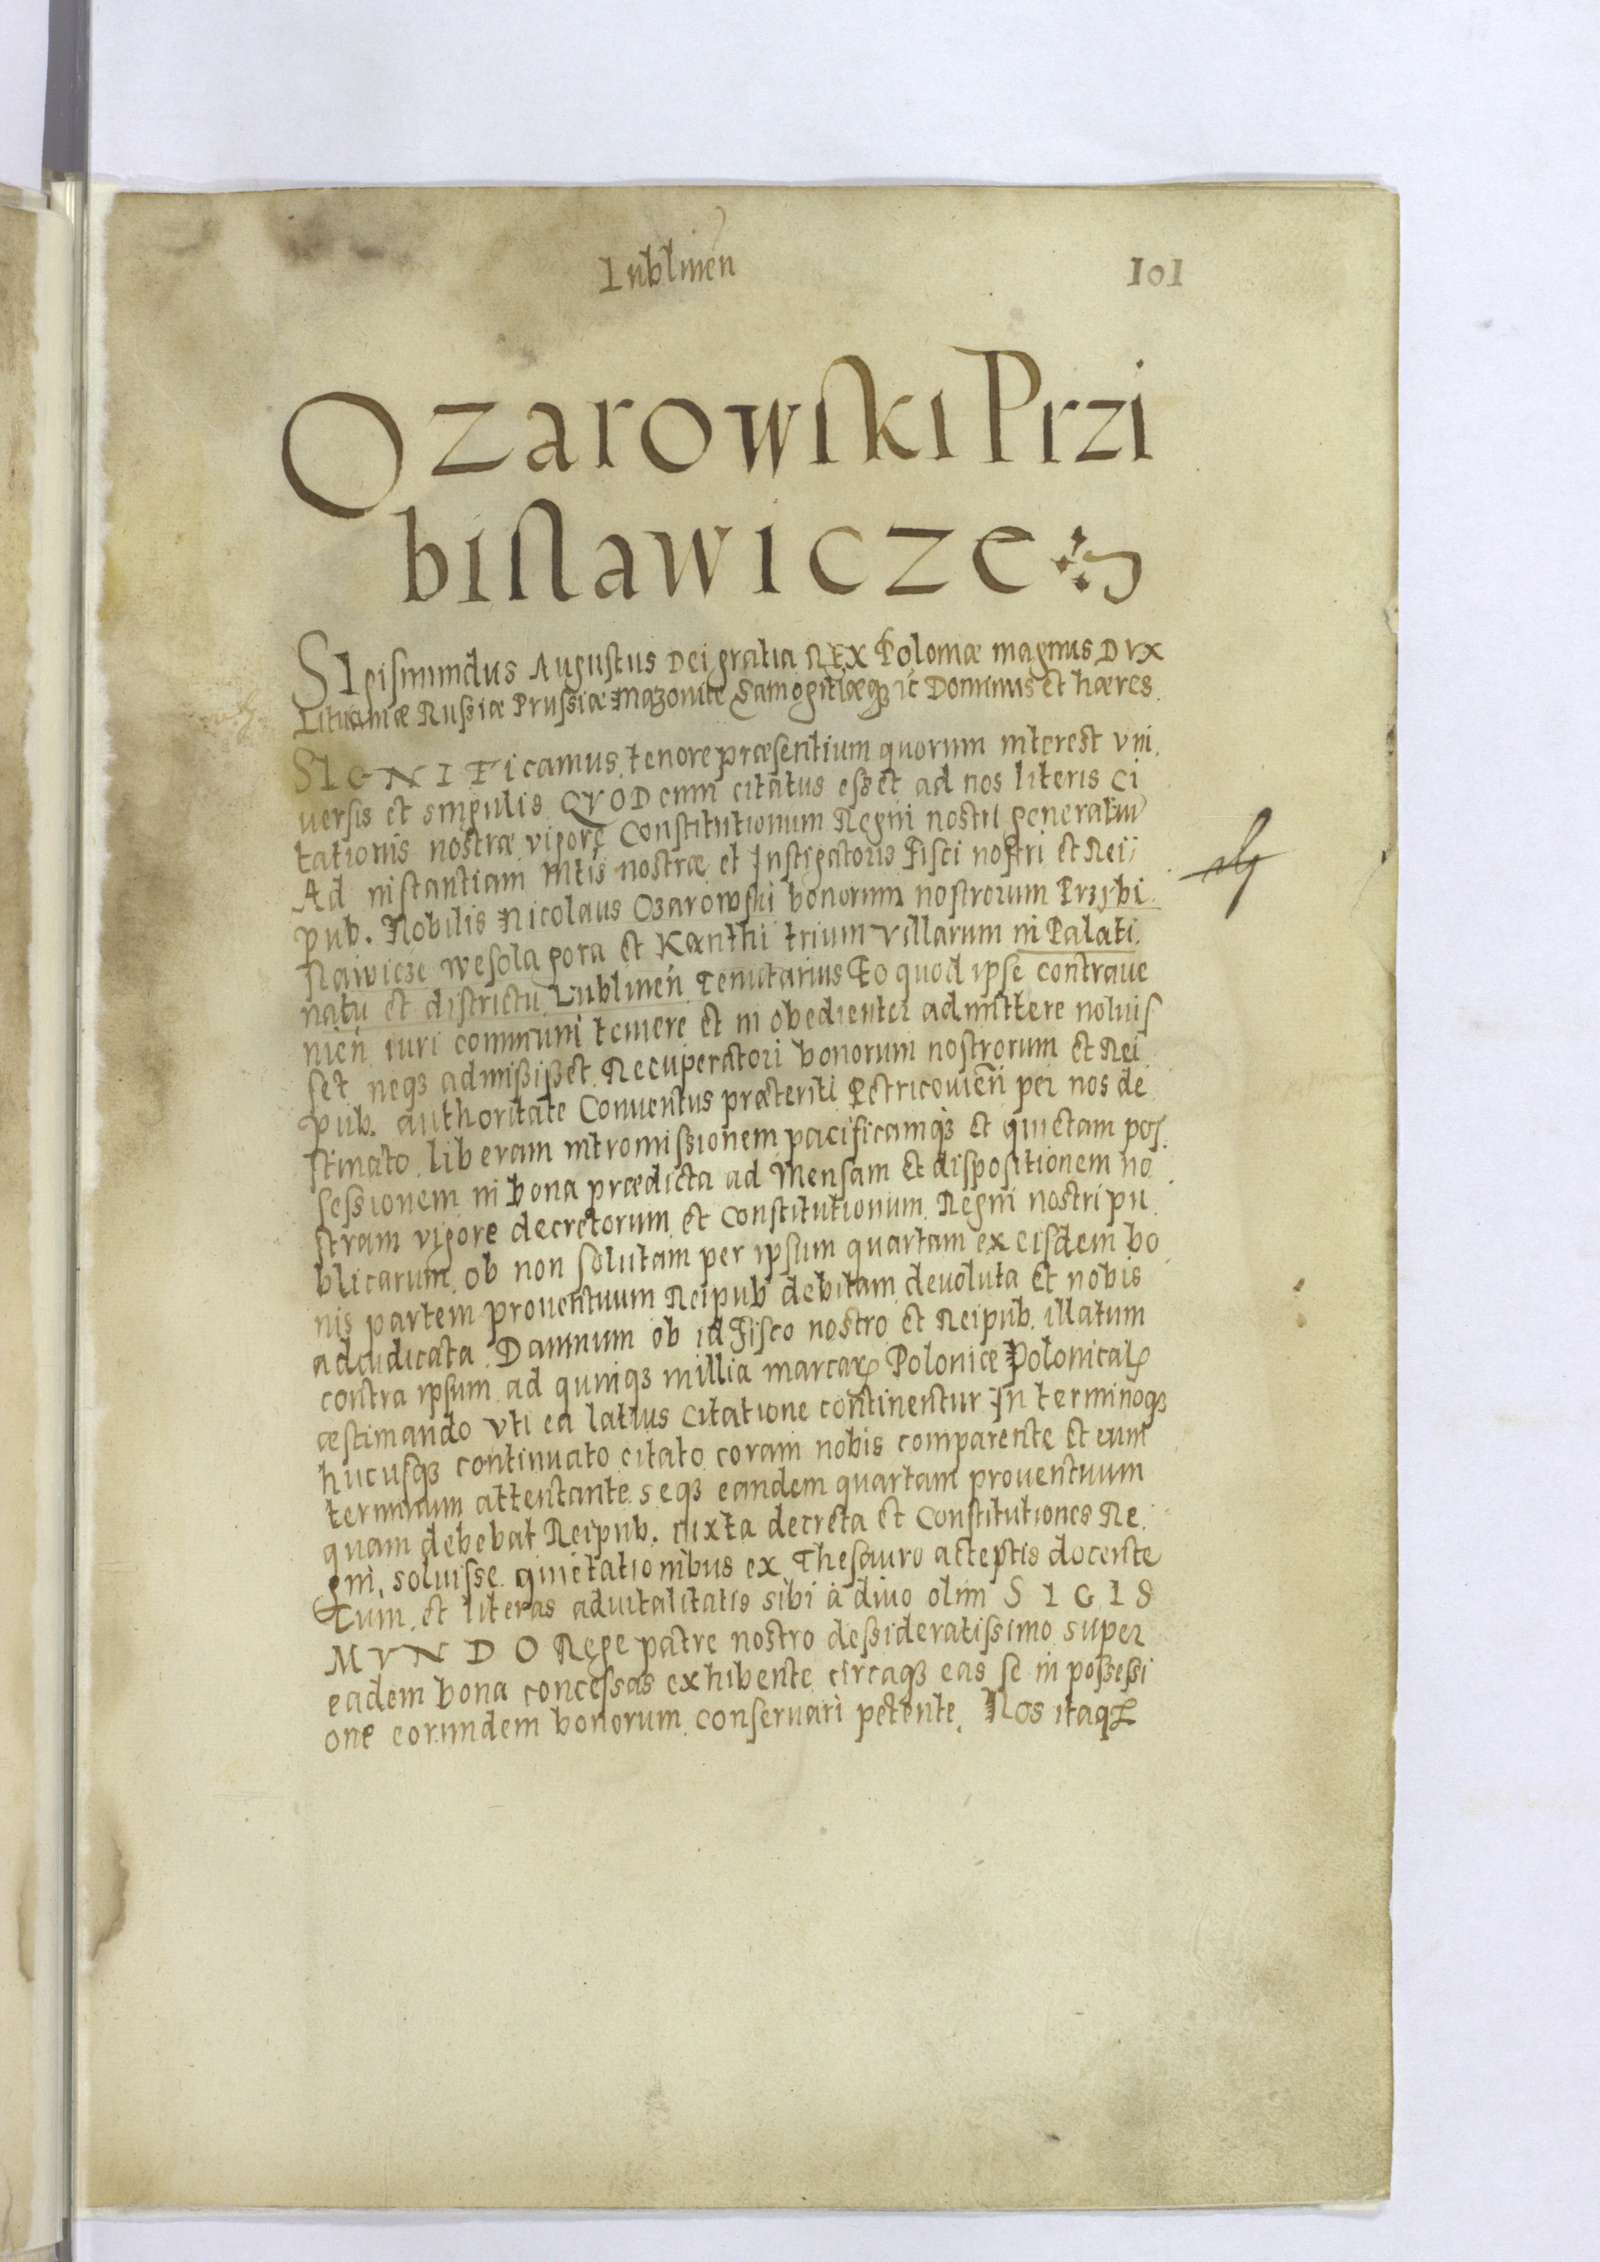 Lublineñ
101
Ozarowski Przi
bislawicze
SIgismundus Augustus Dei gratia REX Poloniæ magnus DVX
Lituaniæ Russiæ Prussiæ Mazoviæ Samogitiæqʒ ꝛc Dominus et hæres
SIGNIFicamus tenore præsentium quorum interest vni
versis et singulis QVOD cum citatus esset ad nos literis ci
tationis nostræ vigore Constitutionum Regni nostri generaliu
Ad instantiam Mtis nostræ et Instigatoris Fisci nostri et Rei
pub. Nobilis Nicolaus Ozarowski bonorum nostrorum Przybi
slawicze Wesola gora et Kanthi trium villarum in Palati
natu et districtu Lublineñ Tenutarius Eo quod ipse contrave
nieñ iuri communi temere et in obedienter admittere noluis
set neqʒ admisisset Recuperatori bonorum nostrorum et Rei
pub. authoritate Conventus præteriti Petricovieñ per nos de
stinato liberam intromissionem pacificamqʒ et quietam pos
sessionem in bona prædicta ad Mensam et dispositionem no
stram vigore decretorum et Constitutionum Regni nostri pu
blicarum ob non solutam per ipsum quartam ex eisdem bo
nis partem proventuum Reipub debitam devoluta et nobis
adiudicata Damnum ob id Fisco nostro et Reipub. illatum
contra ipsum ad quinqʒ millia marcaꝝ Polonicæ Polonicalꝭ
æstimando vti ea latius Citatione continentur In terminoqʒ
hucusqʒ continuato citato coram nobis comparente et eum
terminum attentante seqʒ eandem quartam proventuum
quam debebat Reipub. iuxta decreta et Constitutiones Re
gni, solvisse quietationibus ex Thesauro acceptis docente
Tum et literas advitalitatis sibi à divo olim SIGIS
MVNDO Rege patre nostro dessideratissimo super
eadem bona concessas exhibente circaqʒ eas se in possessi
one eorundem bonorum conservari petente. Nos itaqʒ